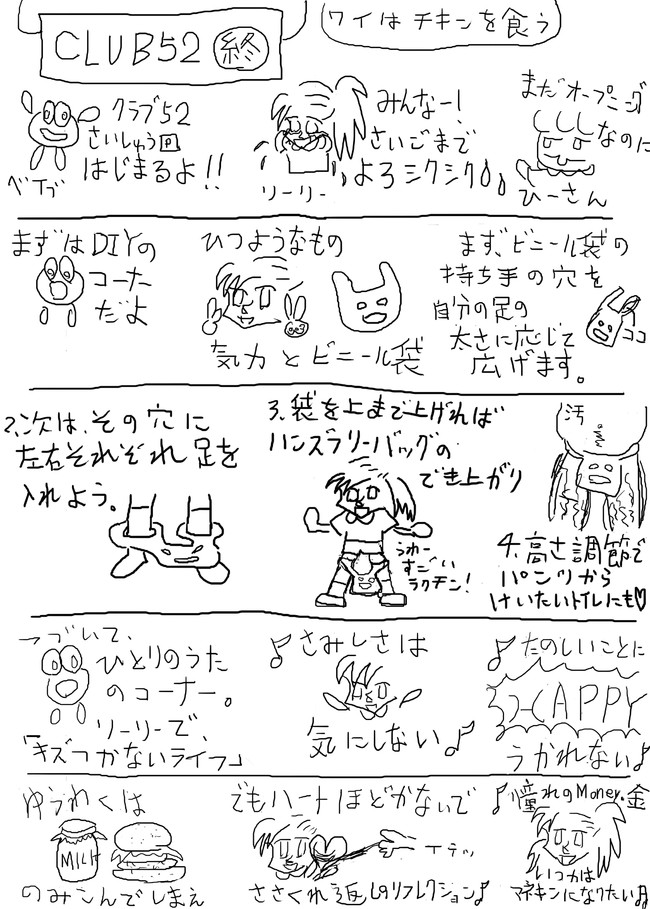 CLUB52 終
ワイはチキンを食う
クラブ52
さいしゅう回
はじまるよ!!
ベイブ
みんなー!
さいごまで
よろシクシク
リーリー
まだオープニング
なのに
ひーさん
まずはDIYの
コーナー
だよ
ひつようなもの
気力とビニール袋
まず、ビニール袋の
持ち手の穴を
自分の足の
太さに応じて
広げます。
ココ
2、次は、その穴に
左右それぞれ足を
入れよう。
3、袋を上まで上げれば
ハンズラリーバッグの
でき上がり
うわー
すごい
ラクチン!
汚
4、高さ調節で
パンツから
けいたいトイレにも♡
つづいて、
ひとりのうた
のコーナー。
リーリーで、
「キズつかないライフ」
♪さみしさは
気にしない♪
♪たのしいことに
APPY
うかれない♪
ゆうわくは
MILK
のみこんでしまえ
でもハートほどかないで
エテッ
ささくれ返しのリフレクション♪
♪憧れのMoney、金
いつかは
マネキンになりたい♫